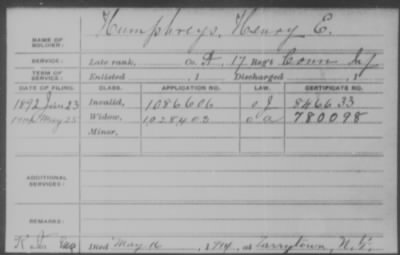 Humphreys, Henry E.
NAME OF
SOLDIER:
SERVICE: Late rank, Co. A, 17 Reg't Conn Inf
TERM OF
SERVICE: Enlisted , 1 Discharged , 1
DATE OF FILING. CLASS. APPLICATION NO. LAW. CERTIFICATE NO.
1892 Jan 23 Invalid, 1086606 846633
May 25 Widow, 1028403 780098
Minor,
ADDITIONAL
SERVICES:
REMARKS:
Died May 16, 1914, at Tarrytown, N.Y.